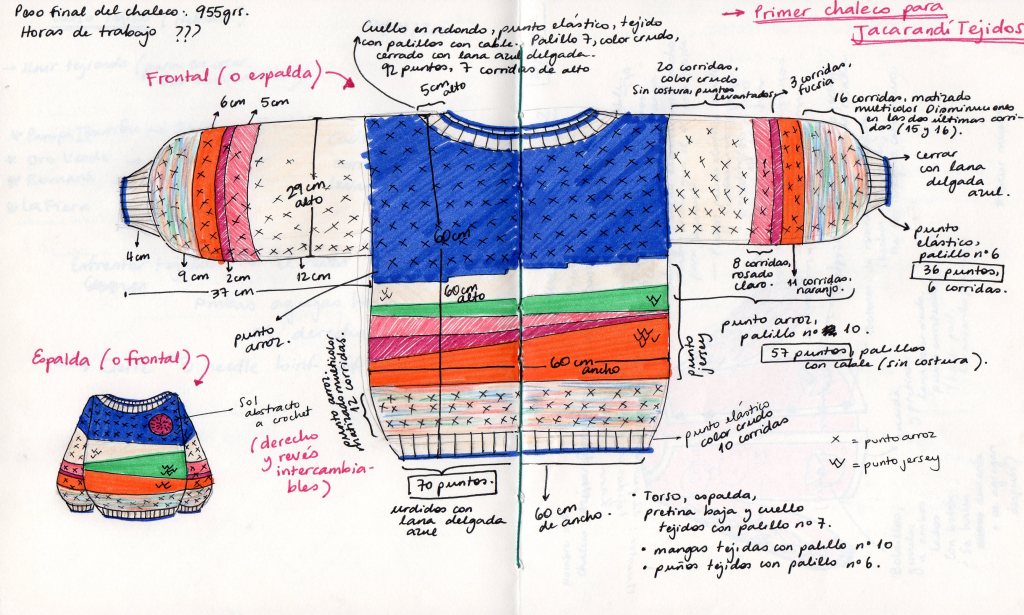 Peso final del chaleco: 955grs.
Horas de trabajo ???
→ Primer chaleco para
Jacarandí Tejidos
Cuello en redondo, punto elástico, tejido
con palillos con cable. Palillo 7, color crudo,
cerrado con lana azul delgada.
92 puntos, 7 corridas de alto
Frontal (o espalda)
5cm
alto
20 corridas,
color crudo
Sin costura, puntos
levantados
3 corridas,
fucsia
16 corridas, matizado
multicolor Disminuciones
en las dos últimas corri-
das (15 y 16).
6cm
5cm
29 cm
alto
60 cm
cerrar
con lana
delgada
azul.
4cm
9 cm
2cm
12 cm
37 cm
60 cm
alto
punto
elástico,
palillo nº6
36 puntos,
6 corridas.
8 corridas,
rosado
claro.
11 corridas,
naranjo.
punto
arroz.
punto arroz,
palillo nº 10.
57 puntos, palillos
con cable (sin costura).
punto
jersey
60 cm
ancho
punto arroz.
matizado multicolor
12 corridas.
Espalda (o frontal)
Sol
abstracto
a crochet
(derecho
y revés
intercambia-
bles)
punto elástico
color crudo
10 corridas
x = punto arroz
= punto jersey
70 puntos.
urdidos con
lana delgada
azul
60 cm
de ancho.
• Torso, espalda,
pretina baja y cuello
tejidos con palillo nº 7.
• mangas tejidas con palillo nº 10
• puños tejidos con palillo nº6.